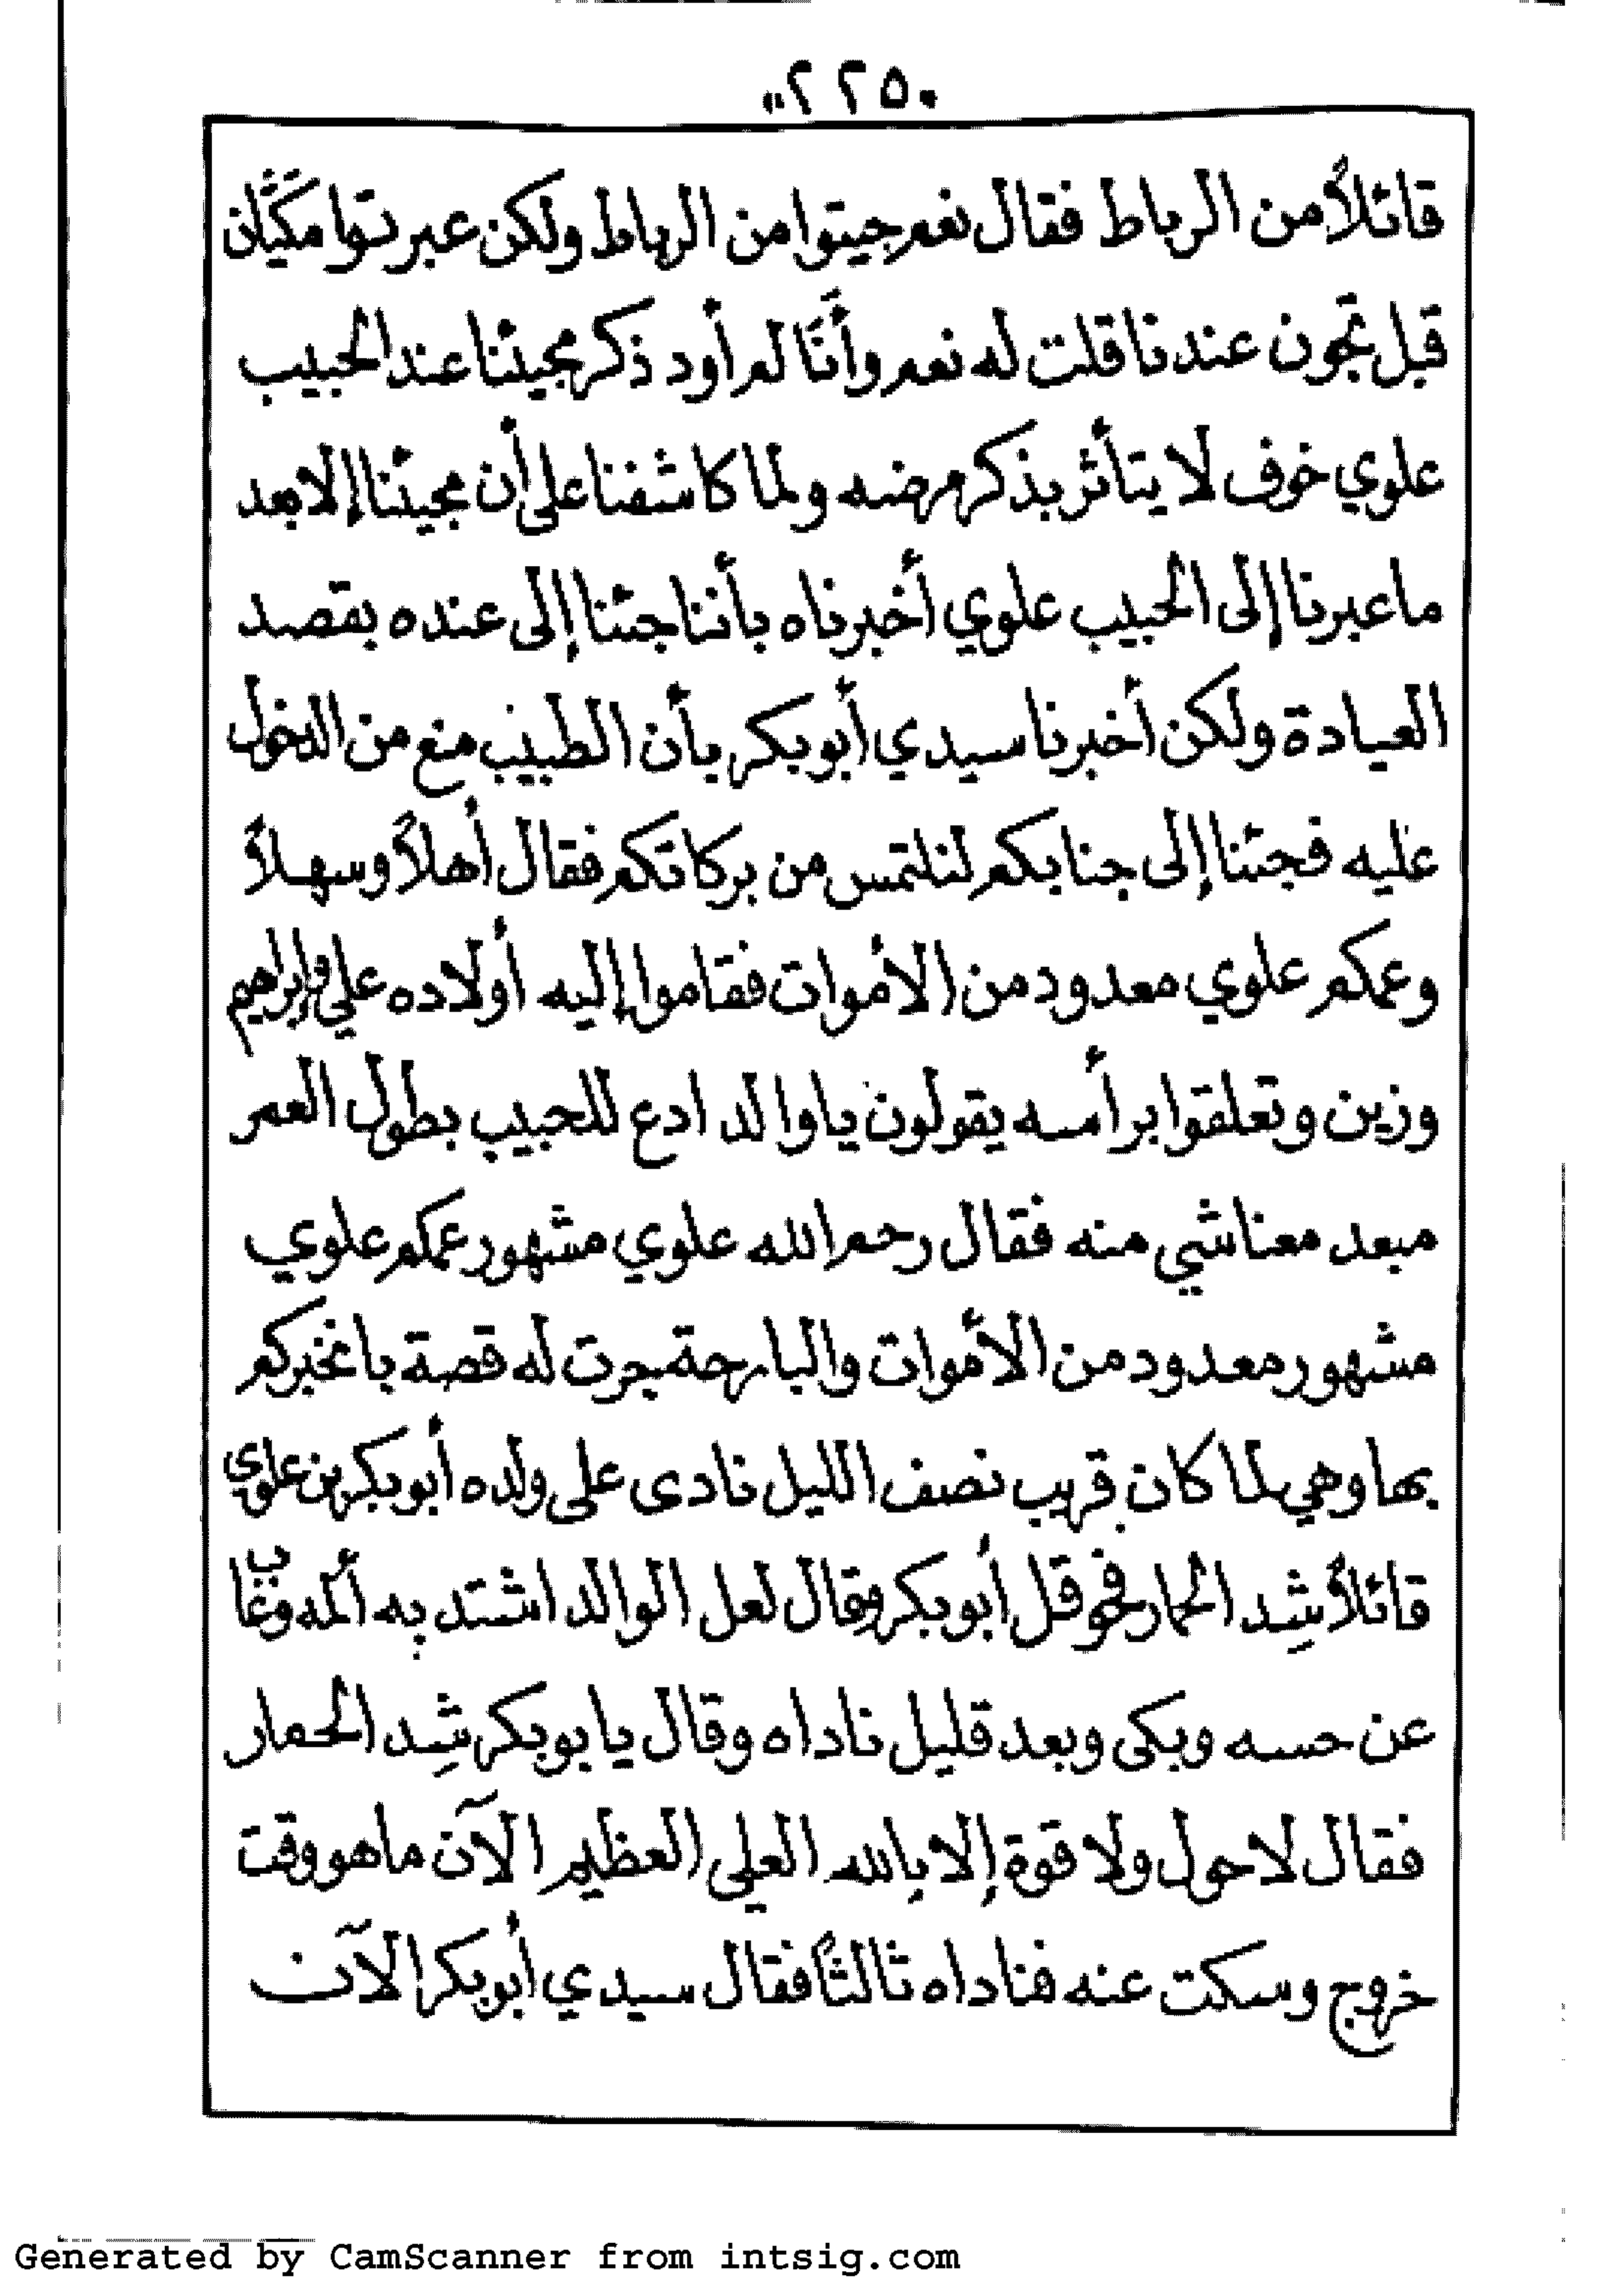 ٢٢٥
قائلاً من الرباط فقال نعم جيتوا من الرباط ولكن عبرتوا مكَّان
قبل تجون عندنا قلت له نعم وأنَّا لم أود ذكر مجيئنا عند الحبيب
علوي خوف لا يتأثر بذكر مرضه ولما كاشفنا على أن مجيئنا إلا بعد
ما عبرنا إلى الحبيب علوي أخبرناه بأننا جئنا إلى عنده بقصد
العيادة ولكن أخبرنا سيدي أبوبكر بأن الطبيب منع من الدخول
عليه فجئنا إلى جنابكم لنلتمس من بركاتكم فقال أهلاً وسهلاً
وعمكم علوي معدود من الأموات فقاموا إليه أولاده علي وإبراهيم
وزين وتعلقوا برأسه يقولون يا والد ادع للحبيب بطول العمر
مبعد معنا شي منه فقال رحم الله علوي مشهور عمكم علوي
مشهور معدود من الأموات والبارحة جرت له قصة با نخبركم
بها وهي لما كان قريب نصف الليل نادى على ولده أبوبكر بن علوي
قائلاً شِد الحمار فحوقل أبوبكر وقال لعل الوالد اشتد به ألمه وغاب
عن حسه وبكى وبعد قليل ناداه وقال يا بوبكر شِد الحمار
فقال لا حول ولا قوة إلا بالله العلي العظيم الآن ما هو وقت
خروج وسكت عنه فناداه ثالثاً فقال سيدي أبوبكر الآن
Generated by CamScanner from intsig.com